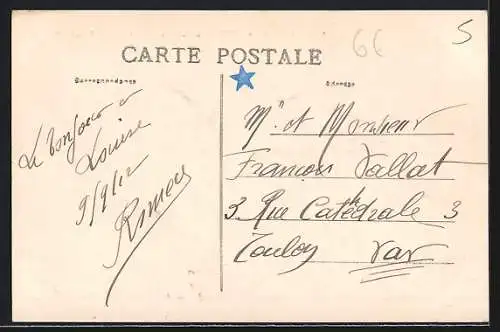 66
5
CARTE POSTALE
Correspondance
Adresse
Le bonjour a
Louise
9/9/12
Mr et Monsieur
François Vallat
3 Rue Catédrale 3
Toulon Var